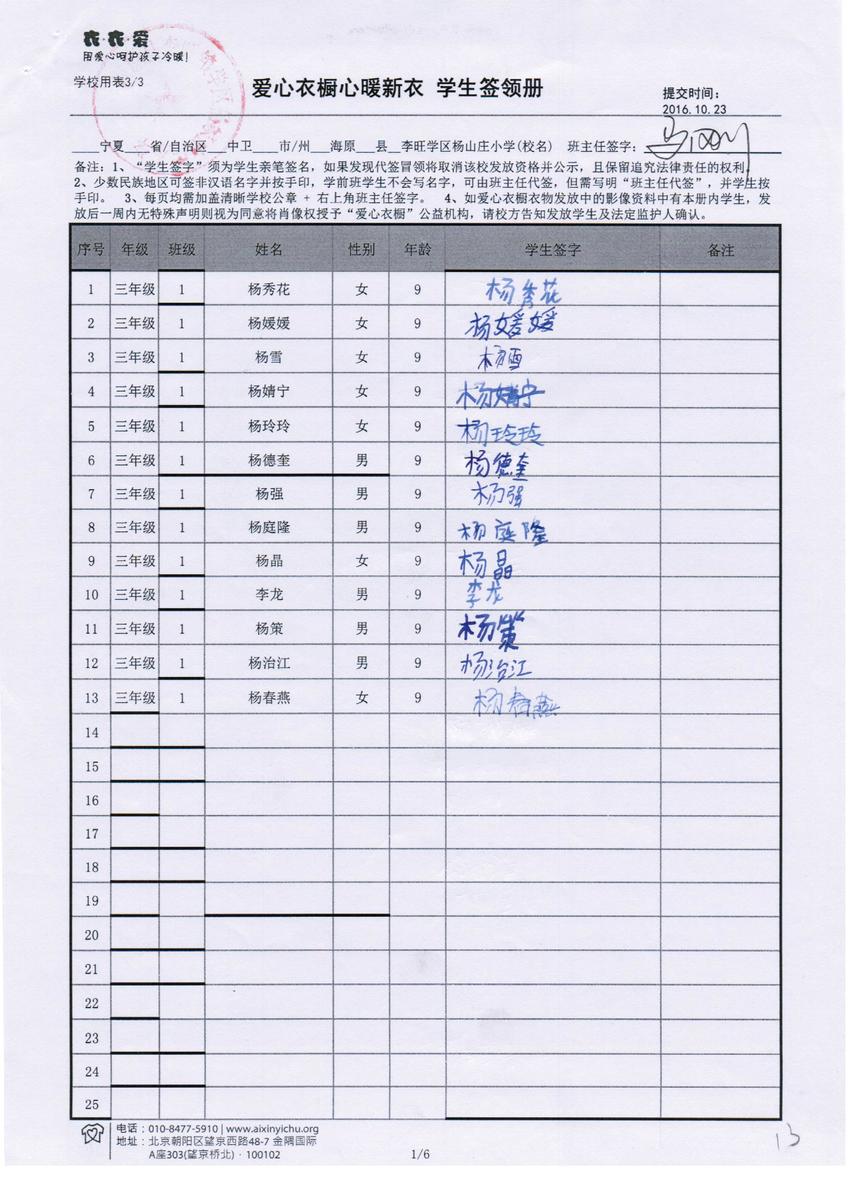 衣·衣·爱
用爱心呵护孩子冷暖!
学校用表3/3
爱心衣橱心暖新衣 学生签领册
提交时间:
2016.10.23
宁夏 省/自治区 中卫 市/州 海原 县 李旺学区杨山庄小学(校名) 班主任签字:
备注: 1、“学生签字”须为学生亲笔签名, 如果发现代签冒领将取消该校发放资格并公示, 且保留追究法律责任的权利。
2、少数民族地区可签非汉语名字并按手印, 学前班学生不会写名字, 可由班主任代签, 但需写明“班主任代签”, 并学生按
手印。 3、每页均需加盖清晰学校公章 + 右上角班主任签字。 4、如爱心衣橱衣物发放中的影像资料中有本册内学生, 发
放后一周内无特殊声明则视为同意将肖像权授予“爱心衣橱”公益机构, 请校方告知发放学生及法定监护人确认。
序号 年级 班级 姓名 性别 年龄 学生签字 备注
1 三年级 1 杨秀花 女 9 杨秀花
2 三年级 1 杨媛媛 女 9 杨媛媛
3 三年级 1 杨雪 女 9 杨雪
4 三年级 1 杨婧宁 女 9 杨婧宁
5 三年级 1 杨玲玲 女 9 杨玲玲
6 三年级 1 杨德奎 男 9 杨德奎
7 三年级 1 杨强 男 9 杨强
8 三年级 1 杨庭隆 男 9 杨庭隆
9 三年级 1 杨晶 女 9 杨晶
10 三年级 1 李龙 男 9 李龙
11 三年级 1 杨策 男 9 杨策
12 三年级 1 杨治江 男 9 杨治江
13 三年级 1 杨春燕 女 9 杨春燕
14
15
16
17
18
19
20
21
22
23
24
25
电话: 010-8477-5910 | www.aixinyichu.org
地址: 北京朝阳区望京西路48-7 金隅国际
A座303(望京桥北) · 100102
1/6
13